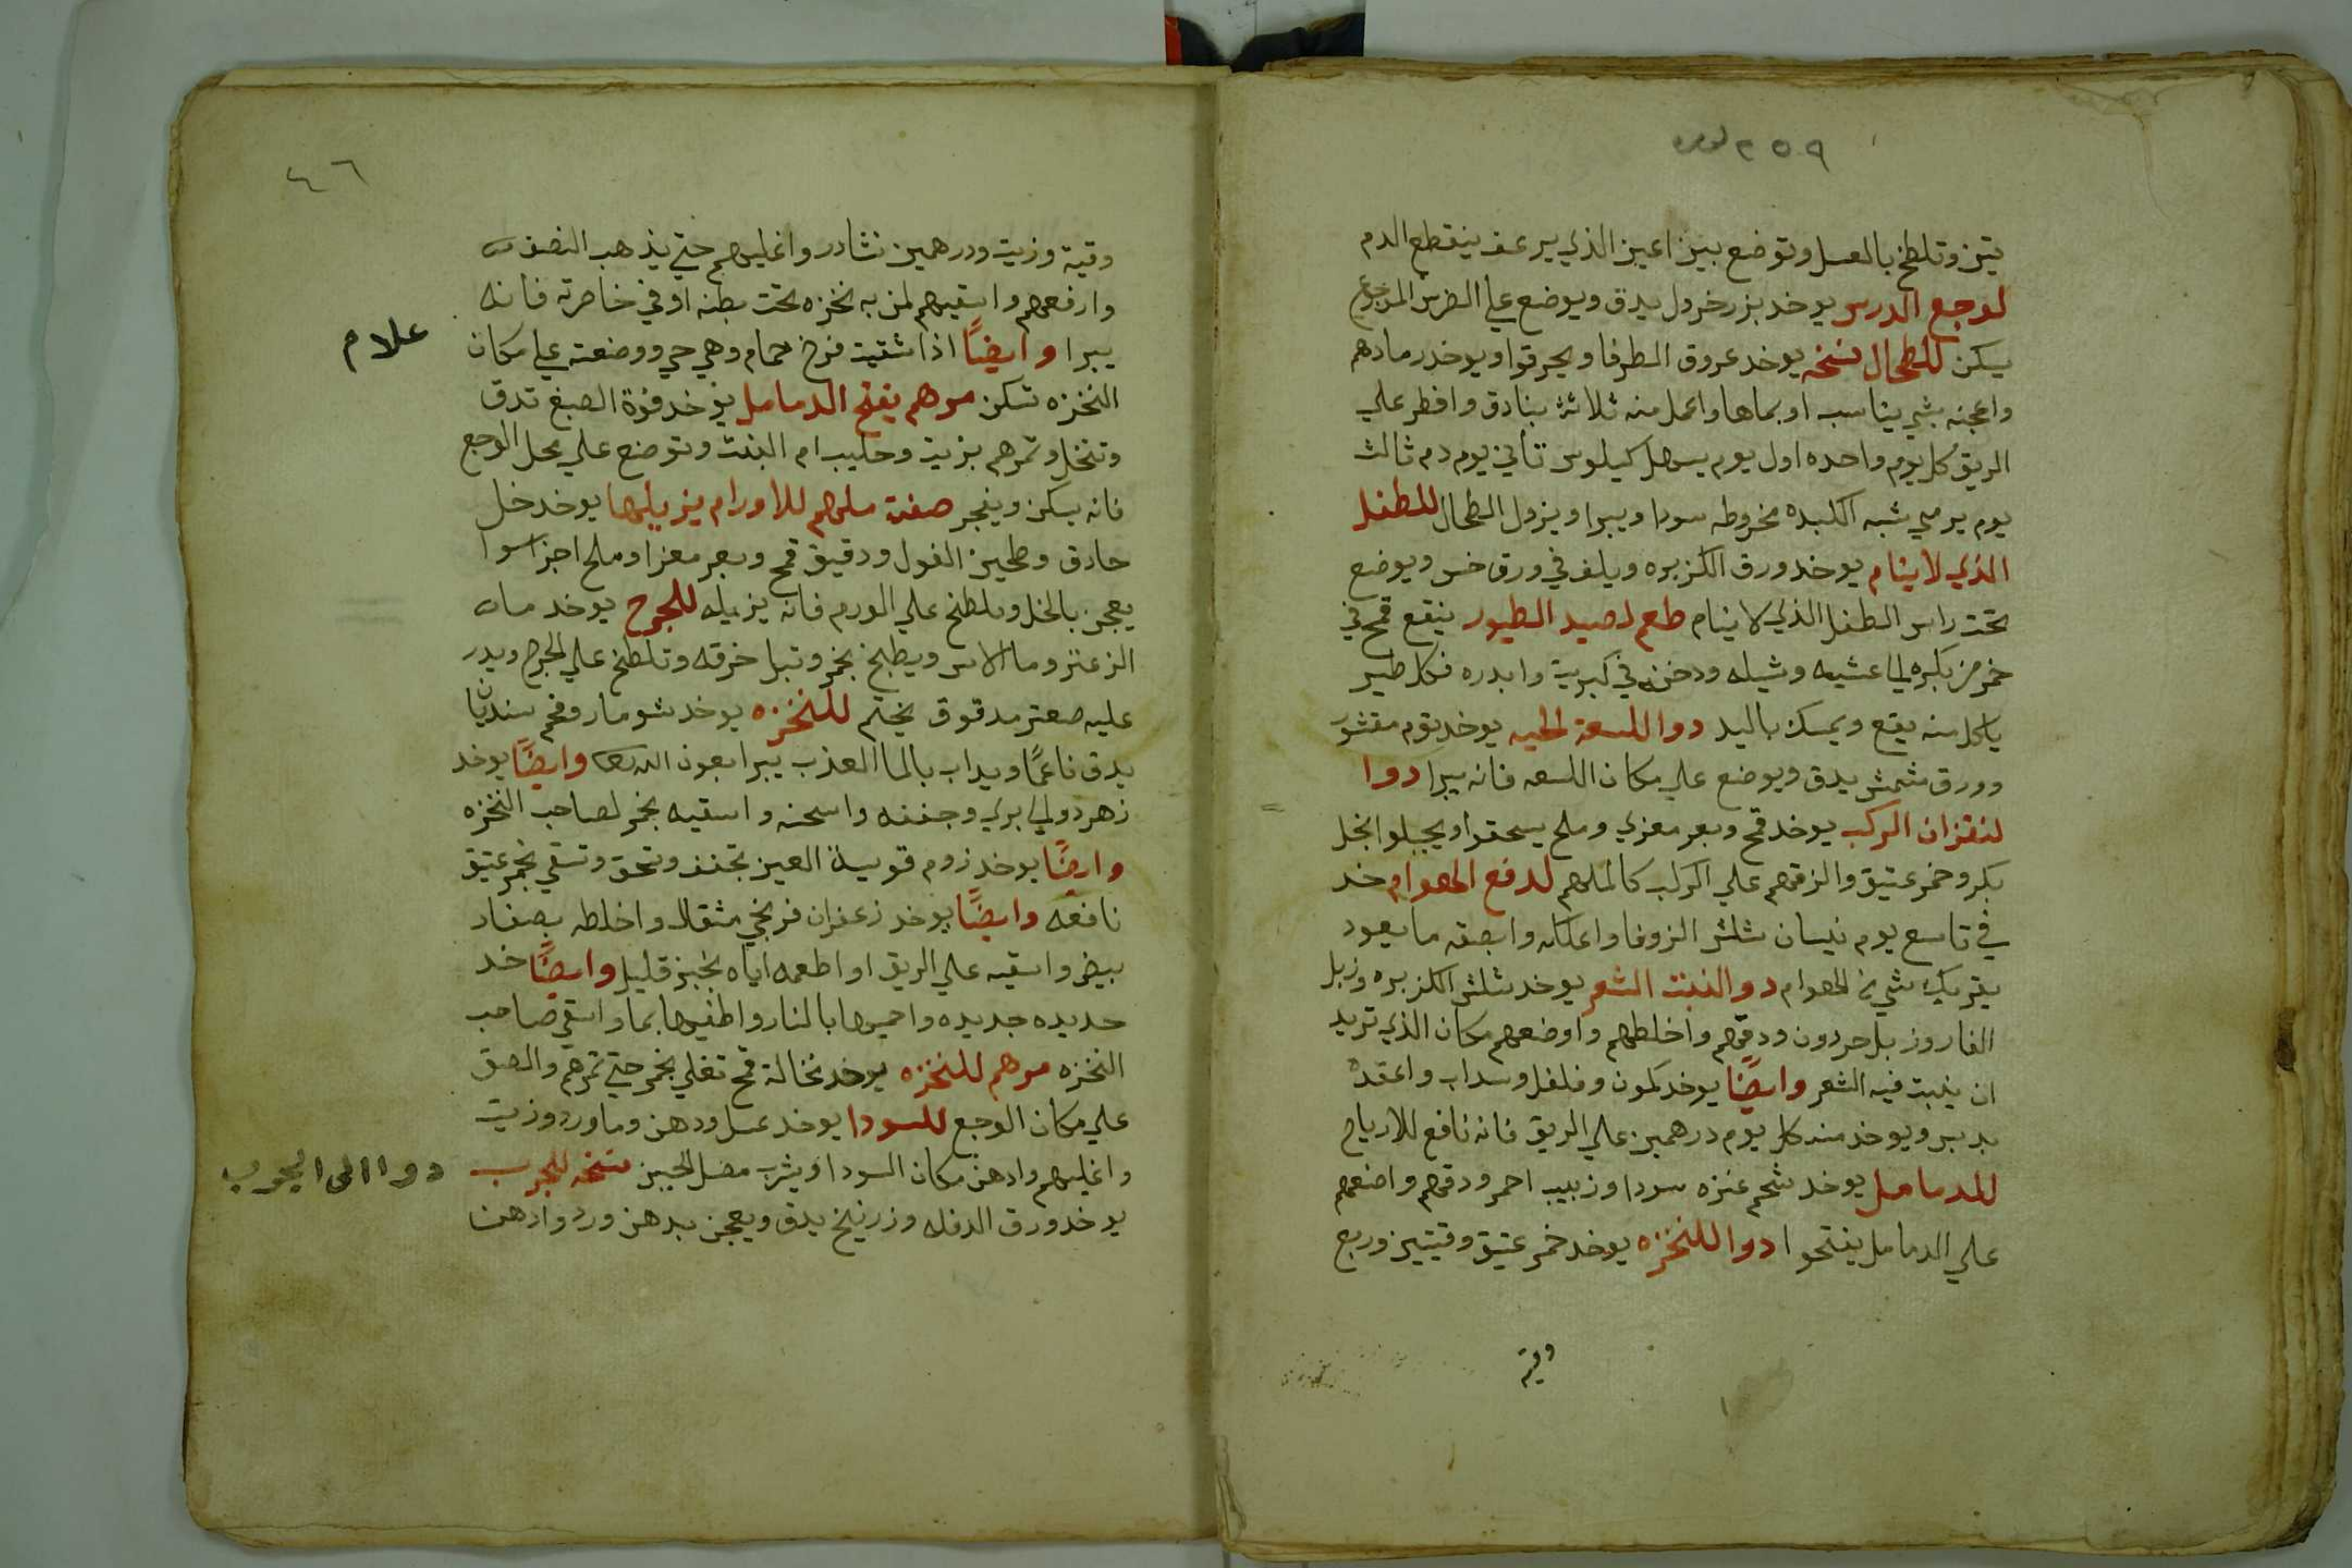 تين وتلطخ بالعسل وتوضع بين اعين الذي يرعف ينقطع الدم
لوجع الدرس يوخد بزر خردل يدق ويوضع علي الضرس الموجوع
يسكن للطحال نسخه يوخد عروق الطرفا ويحرقوا ويوخد رمادهم
واعجنه بشي يناسب او بماها واعمل منه ثلاثة بنادق وافطر علي
الريق كل يوم واحده اول يوم يسهل كيلوس تاني يوم دم ثالث
يوم يرمي شبه الكبده مخروطه سودا ويبرا ويزول الطحال للطفل
الذي لا ينام يوخد ورق الكزبره ويلف في ورق خس ويوضع
تحت راس الطفل الذي لا ينام طعم لصيد الطيور ينقع قمح في
خمر من بكره الي عشيه وشيله ودخنه في كبريت وابدره فكل طير
ياكل منه يقع ويمسك باليد دوا للسعة الحيه يوخد توم مقشور
وورق مشمش يدق ويوضع علي مكان اللسعه فانه يبرا دوا
لنقزان الركب يوخد قمح وبعر معزي وملح يسحقوا ويجبلوا بخل
بكر وخمر عتيق والزقهم علي الركب كالملهم لدفع الهوام خد
في تاسع يوم نيسان شلش الزوفا واعلكه وابصقه ما يعود
يقربك شي من الهوام دوا لنبت الشعر يوخد شلش الكزبره وزبل
الفار وزبل حردون ودقهم واخلطهم واوضعهم مكان الذي تريد
ان ينبت فيه الشعر وايضًا يوخد كمون وفلفل وسداب واعقده
بدبس ويوخد منه كل يوم درهمين علي الريق فانه نافع للارياح
للدمامل يوخد شحم عنزه سودا وزبيب احمر ودقهم واضعهم
علي الدمامل ينفتحوا دوا للنخزه يوخد خمر عتيق وقيتين وربع
وقية
٤٦
وقية وزيت ودرهمين نشادر واغليهم حتي يذهب النصف
وارفعهم واسقيهم لمن به نخزه تحت بطنه او في خاصرته فانه
يبرا وايضًا اذا شقيت فرخ حمام وهي حي ووضعته علي مكان
علام
النخزه تسكن مرهم يفتح الدمامل يوخد فوة الصبغ تدق
وتنخل وتمرهم بزيت وحليب ام البنت وتوضع علي محل الوجع
فانه يسكن ويفجر صفة ملهم للاورام يزيلها يوخد خل
حادق وطحين الفول ودقيق قمح وبعر معزا وملح اجزا سوا
يعجن بالخل ويلطخ علي الورم فانه يزيله للجرح يوخد ماء
الزعتر وما الاس ويطبخ بخمر وتبل خرقه وتلطخ علي الجرح ويدر
عليه صعتر مدقوق يختم للنخزه يوخد شومار وفحم سنديان
يدق ناعمًا ويداب بالما العذب يبرا بعون الله وايضًا يوخد
زهر دولي بري وجففه واسحنه واسقيه بخمر لصاحب النخزه
وايضًا يوخد زوم قويسة العين تجفف وتحق وتسقي بخمر عتيق
نافعه وايضًا يوخد زعفران فرنجي مثقال واخلطه بصفار
بيض واسقيه علي الريق او اطعمه اياه بخبز قليل وايضًا خد
حديده جديده واحميها بالنار واطفيها بما واسقي صاحب
النخزه مرهم للنخزه يوخد نخالة قمح تغلي بخمر حتي تمرهم والصق
علي مكان الوجع للسودا يوخد عسل ودهن وماورد وزيت
واغليهم وادهن مكان السودا ويشرب مصل الجبن نسخه للجرب
دوا الى الجرب
يوخد ورق الدفله وزرنيخ يدق ويعجن بدهن ورد وادهن